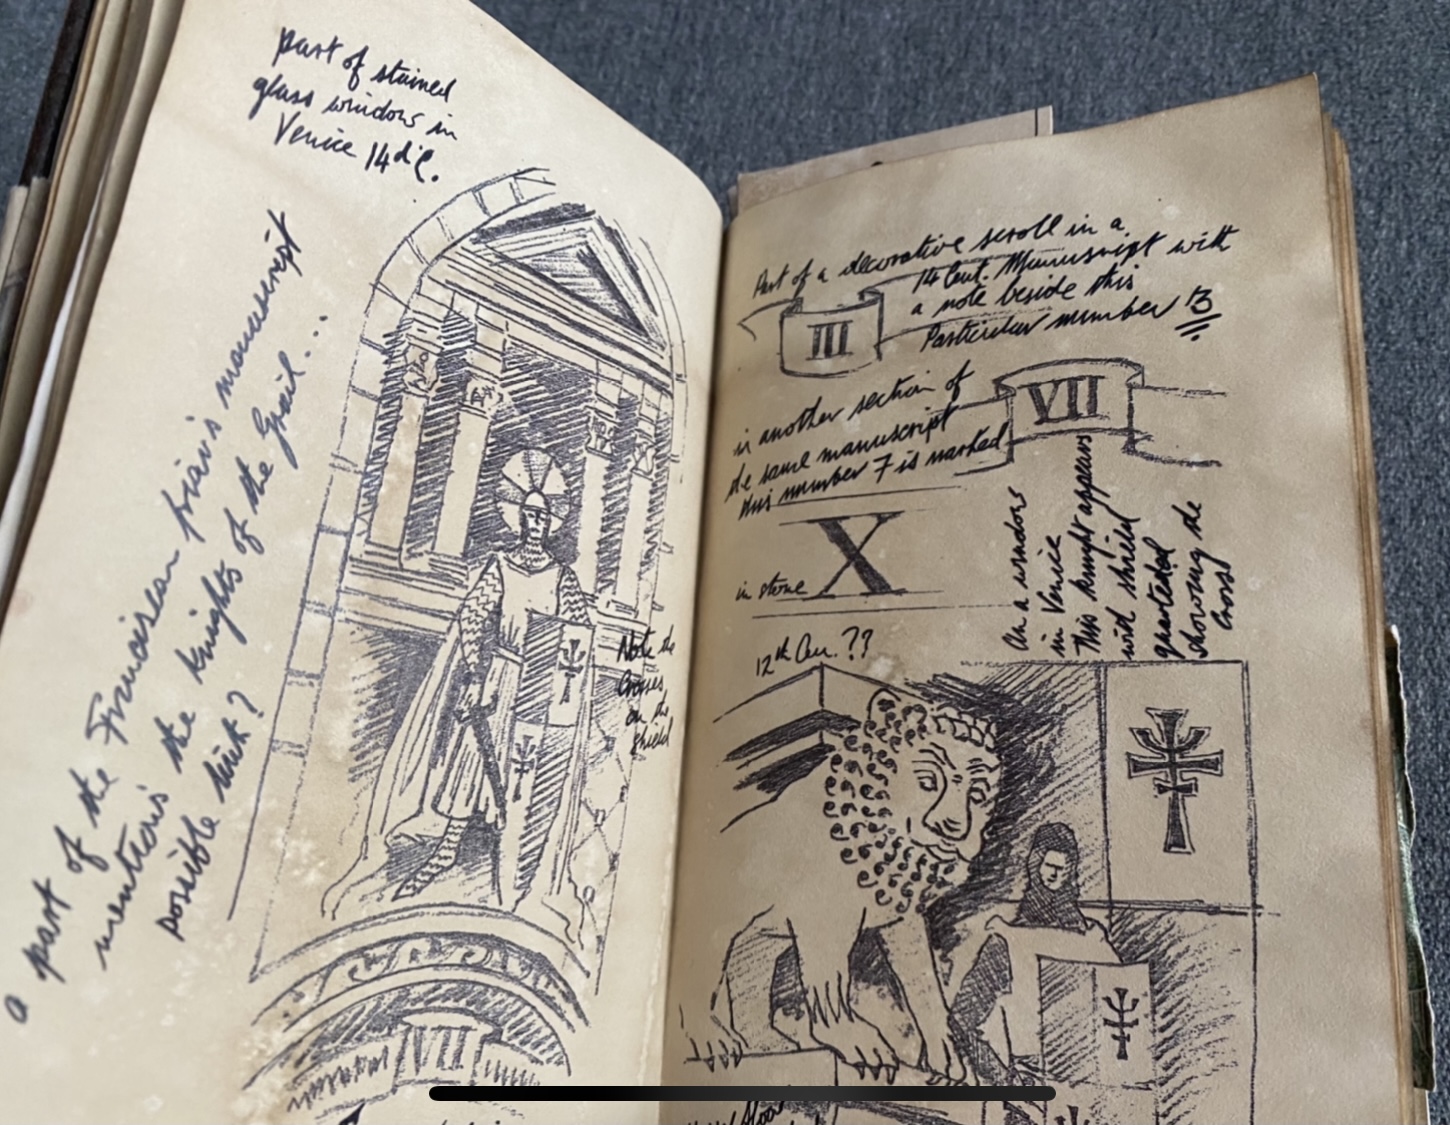 part of stained
glass window in
Venice 14d C.
a part of the Franciscan friar's manuscript
mentions the Knights of the Grail...
possible link?
Note the
Crosses
on the
shield
VII
Part of a decorative scroll in a
14 Cent. Manuscript with
a note beside this
Particular number 3
III
in another section of
de same manuscript
this number 7 is marked
VII
in stone X
On a window
in Venice
This knight appears
with shield
quartered
showing the
Cross
12th Cen. ??